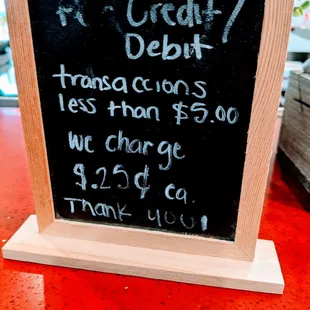 For Credit/
Debit
transaccions
less than $5.00
we charge
$.25¢ ea.
Thank you!